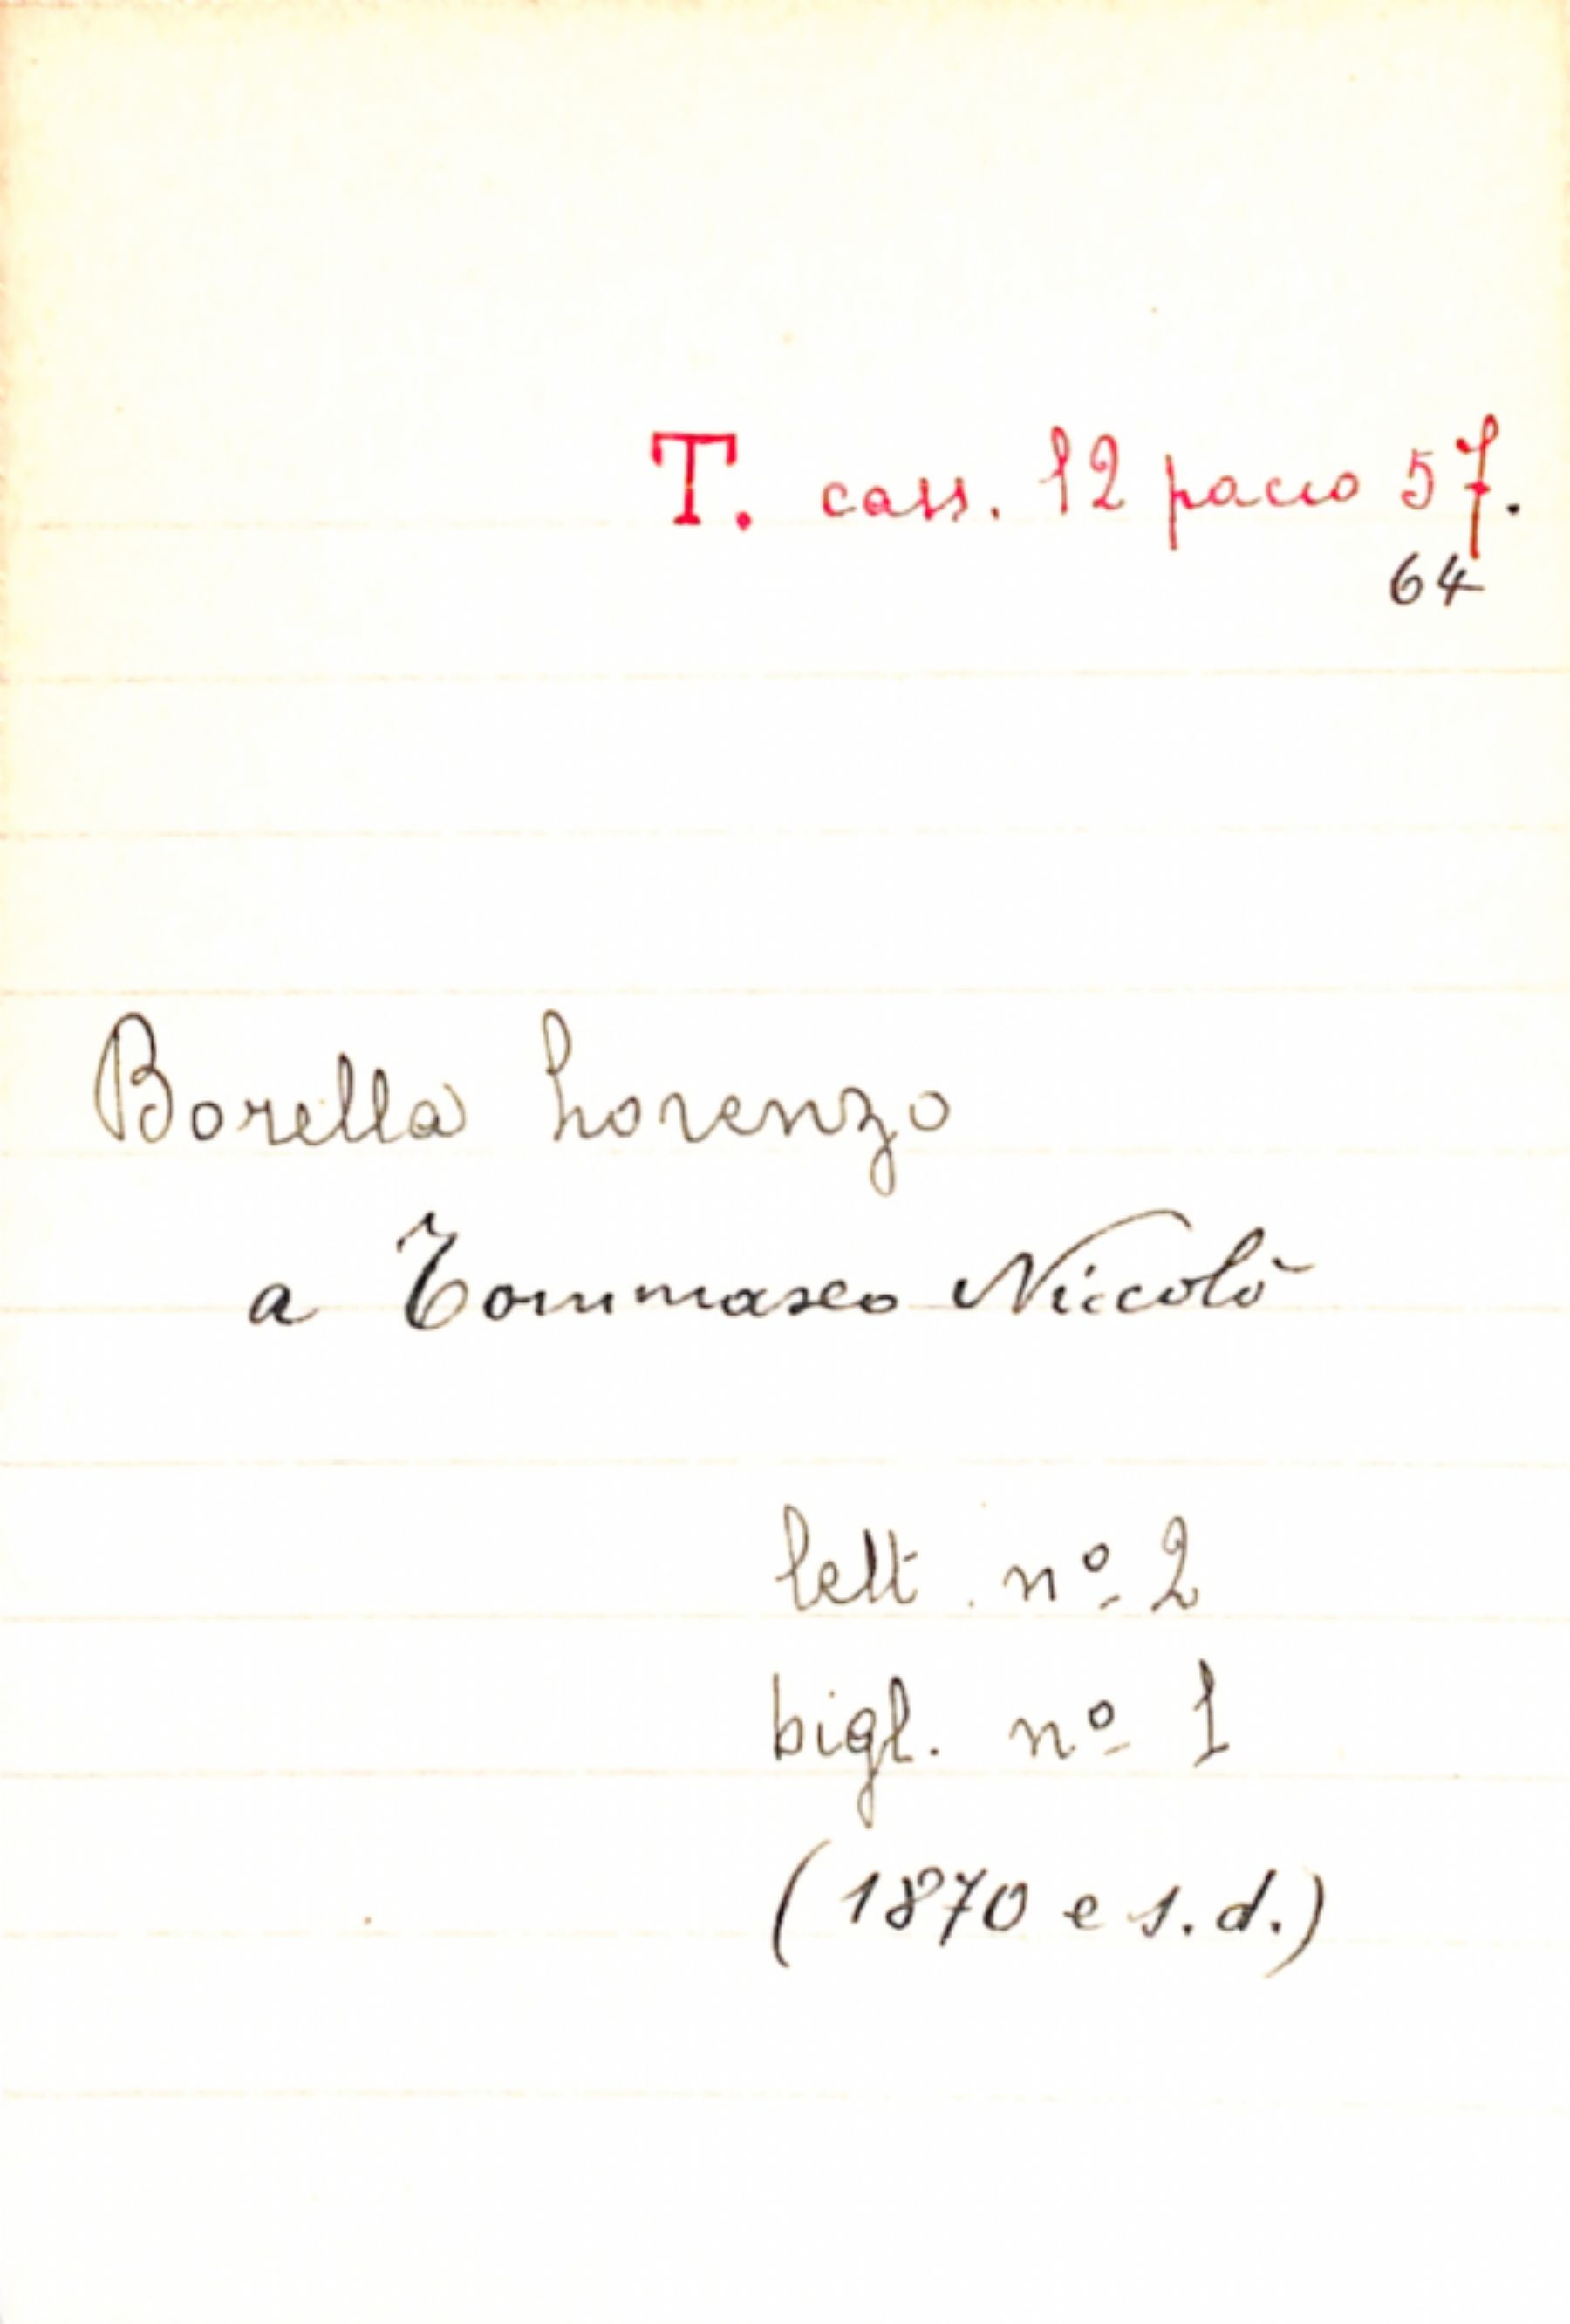 T. cass. 12 pacco 57.
64
Borella Lorenzo
a Tommaseo Niccolò
lett. nº 2
bigl. nº 1
(1870 e s.d.)